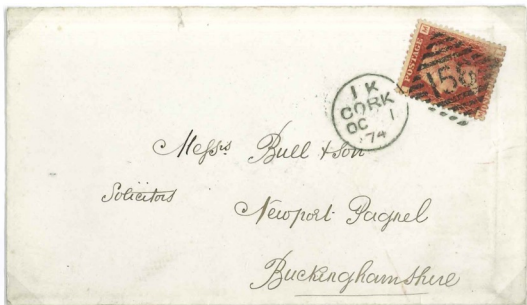 POSTAGE
156
1 K
CORK
OC 1
74
Messrs Bull & Son
Solicitors
Newport Pagnel
Buckinghamshire